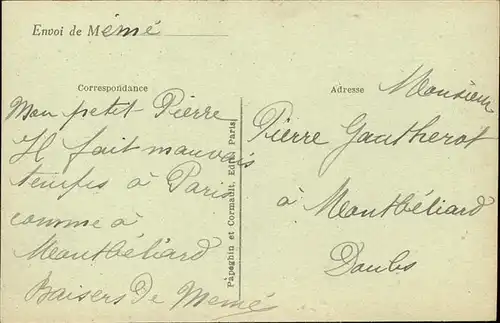 Envoi de Mémé
Correspondance
Mon petit Pierre
Il fait mauvais
temps à Paris
comme à
Montbéliard
Baisers de Mémé
Papeghin et Cormault, Edit. Paris
Adresse
Monsieur
Pierre Gautherot
à Montbéliard
Doubs